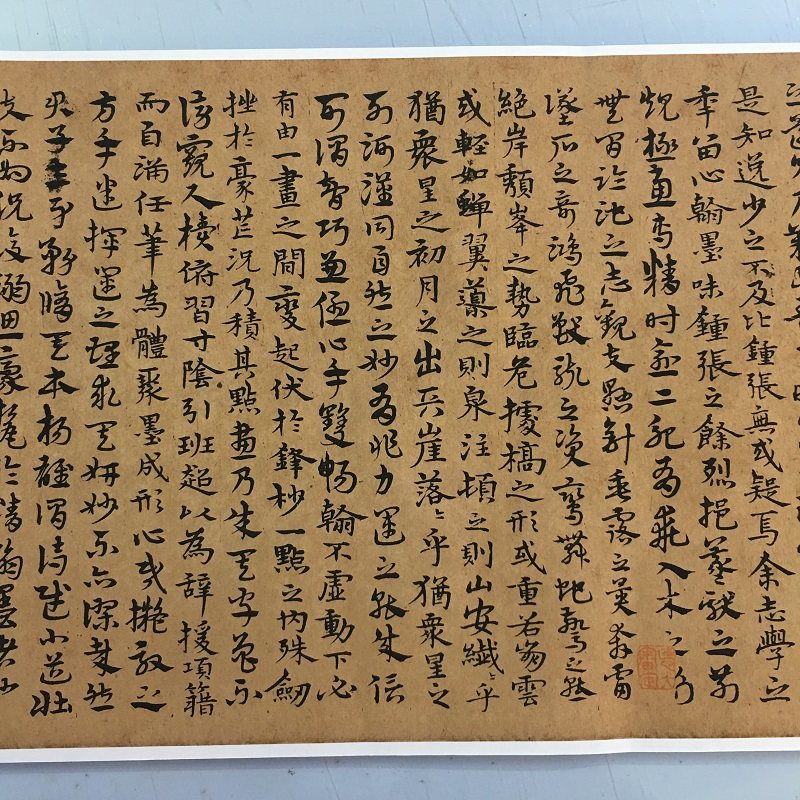 是知逸少之不及比鍾張無或疑焉余志學之
年留心翰墨味鍾張之餘烈挹羲獻之前
規極慮專精時逾二紀有乖入木之術
無間臨池之志觀夫懸針垂露之異奔雷
墜石之奇鴻飛獸駭之資鸞舞蛇驚之態
絕岸頹峯之勢臨危據槁之形或重若崩雲
或輕如蟬翼導之則泉注頓之則山安纖〻乎
猶衆星之初月之出天崖落〻乎猶衆星之
列河漢同自然之妙有非力運之能成信
可謂智巧兼優心手雙暢翰不虛動下必
有由一畫之間變起伏於鋒杪一點之內殊衄
挫於豪芒況乃積其點畫乃成其字曾不
傍窺尺牘俯習寸陰引班超以為辭援項籍
而自滿任筆為體聚墨成形心昏擬效之
方手迷揮運之理求其妍妙不亦謬哉然
君子立身務脩其本楊雄謂詩賦小道壯
夫不為況復溺思豪釐淪精翰墨者也